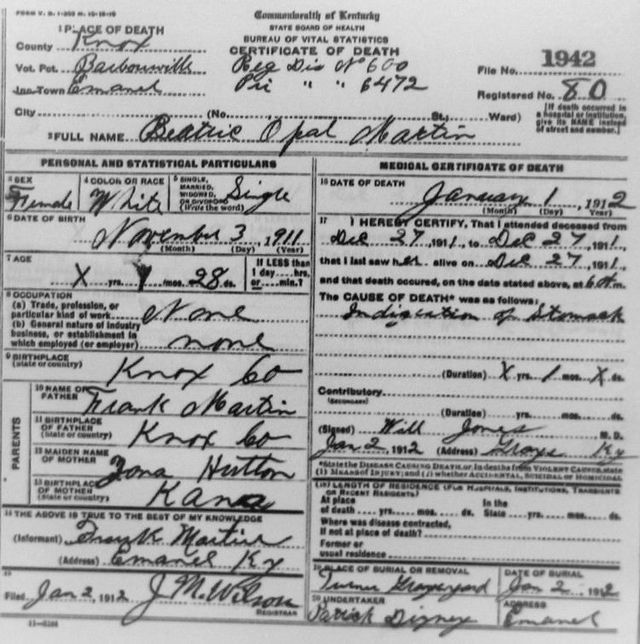 FORM V. S. 1-
Commonwealth of Kentucky
STATE BOARD OF HEALTH
BUREAU OF VITAL STATISTICS
CERTIFICATE OF DEATH
1 PLACE OF DEATH
County Knox
Vot. Pct. Barbourville
Inc. Town Emanel
City (No. St.; Ward)
Reg Dis No 600
Pri " " 6472
File No. 1942
Registered No. 80
[If death occurred in a hospital or institution, give its NAME instead of street and number.]
2 FULL NAME Beatric Opal Martin
PERSONAL AND STATISTICAL PARTICULARS
3 SEX Female
4 COLOR OR RACE White
5 SINGLE, MARRIED, WIDOWED, OR DIVORCED (Write the word) Single
6 DATE OF BIRTH November 3, 1911
(Month) (Day) (Year)
7 AGE X yrs. 1 mos. 28 ds.
If LESS than 1 day ... hrs. or ... min.?
8 OCCUPATION
(a) Trade, profession, or particular kind of work None
(b) General nature of industry business, or establishment in which employed (or employer) none
9 BIRTHPLACE (State or country) Knox Co
PARENTS
10 NAME OF FATHER Frank Martin
11 BIRTHPLACE OF FATHER (State or country) Knox Co
12 MAIDEN NAME OF MOTHER Zona Hutton
13 BIRTHPLACE OF MOTHER (State or country)
14 THE ABOVE IS TRUE TO THE BEST OF MY KNOWLEDGE
(Informant) Frank Martin
(Address) Emanel Ky
15
Filed Jan 2, 1912 J M Wilson
REGISTRAR
MEDICAL CERTIFICATE OF DEATH
16 DATE OF DEATH January 1, 1912
(Month) (Day) (Year)
17 I HEREBY CERTIFY, That I attended deceased from
Dec 27, 1911, to Dec 27, 1911,
that I last saw her alive on Dec 27, 1911,
and that death occured, on the date stated above, at m.
The CAUSE OF DEATH* was as follows:
Indigestion of Stomach
(Duration) X yrs. 1 mos. X ds.
Contributory
(SECONDARY)
(Duration) yrs. mos. ds.
(Signed) Will Jones M. D.
Jan 2, 1912 (Address) Grays Ky
*State the DISEASE CAUSING DEATH, or in deaths from VIOLENT CAUSES, state (1) MEANS OF INJURY; and (2) whether ACCIDENTAL, SUICIDAL or HOMICIDAL
18 LENGTH OF RESIDENCE (FOR HOSPITALS, INSTITUTIONS, TRANSIENTS OR RECENT RESIDENTS)
At place of death yrs. mos. ds. In the State yrs. mos. ds.
Where was disease contracted, If not at place of death?
Former or usual residence
19 PLACE OF BURIAL OR REMOVAL Turner Graveyard
DATE OF BURIAL Jan 2, 1912
20 UNDERTAKER Patrick
ADDRESS Emanel